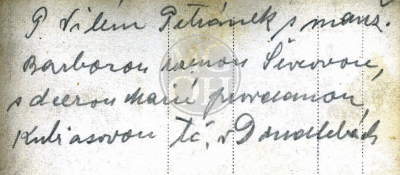 P Vilém Petránek s manž.
Barborou rozenou Ševcovou,
s dcerou Marií provdanou
Kubiasovou tč. v Doudlebách